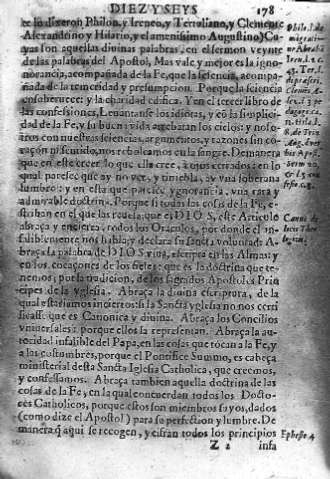 DIEZ Y SEYS 178
ce lo dixeron Philon, y Ireneo, y Tertuliano, y Clemente
Alexandrino y Hilario, y el amenissimo Augustino) Cu-
yas son aquellas diuinas palabras, en el sermon veynte
de las palabras del Apostol, Mas vale, y mejor es la igno-
rancia, acompañada de Fe, que la sciencia, acompa-
ñada de temeridad y presumpcion. Porque la sciencia
ensoberuece: y la charidad edifica. Y en el tercer libro de
las confessiones, Leuantanse los idiotas, y cõ la simplici-
dad de la Fe, y su buena vida arrebatan los cielos: y noso-
tros con nuestras sciencias, argumentos, y razones sin co-
raçon ni sentido, nos rebolcamos en la sangre. De manera
que en este creer lo que ella cree a ojos cerrados en lo
qual paresce que ay no ver, y tiniebla, ay vna soberana
lumbre: y en esta que paresce ygnorancia, vna rara y
admirable doctrina. Porque si todas las cosas de la Fe, e-
striban en el que las reuela, que es DIOS, este Articulo
abraça y encierra, todos los Oraculos, por donde el in-
faliblemente nos habla, y declara su sancta voluntad: A-
braça la palabra de DIOS viua, escripta en las Almas: y
en los coraçones de los fieles: que es la doctrina que te-
nemos, por la tradicion, de los sagrados Apostoles Prin-
cipes de la Yglesia. Abraça la diuina escriptura, de la
qual estariamos inciertos: si la Sancta Yglesia no nos certi
ficasse que es Canonica y diuina. Abraça los Concilios
vniuersales: porque ellos la representan. Abraça la au-
toridad infalible del Papa, en las cosas que tocan a la Fe, y
a las costumbres, porque el Pontifice Summo, es cabeça
ministerial desta Sancta Iglesia Catholica, que creemos,
y confessamos. Abraça tambien aquella doctrina de las
cosas de la Fe, en la qual concuerdan todos los Docto-
res Catholicos, porque estos son miembros suyos, dados
(como dize el Apostol) para su perfection y lumbre. De
manera q̃ aqui se recogen, y cifran todos los principios
Z 2 infa
Ephes. 4